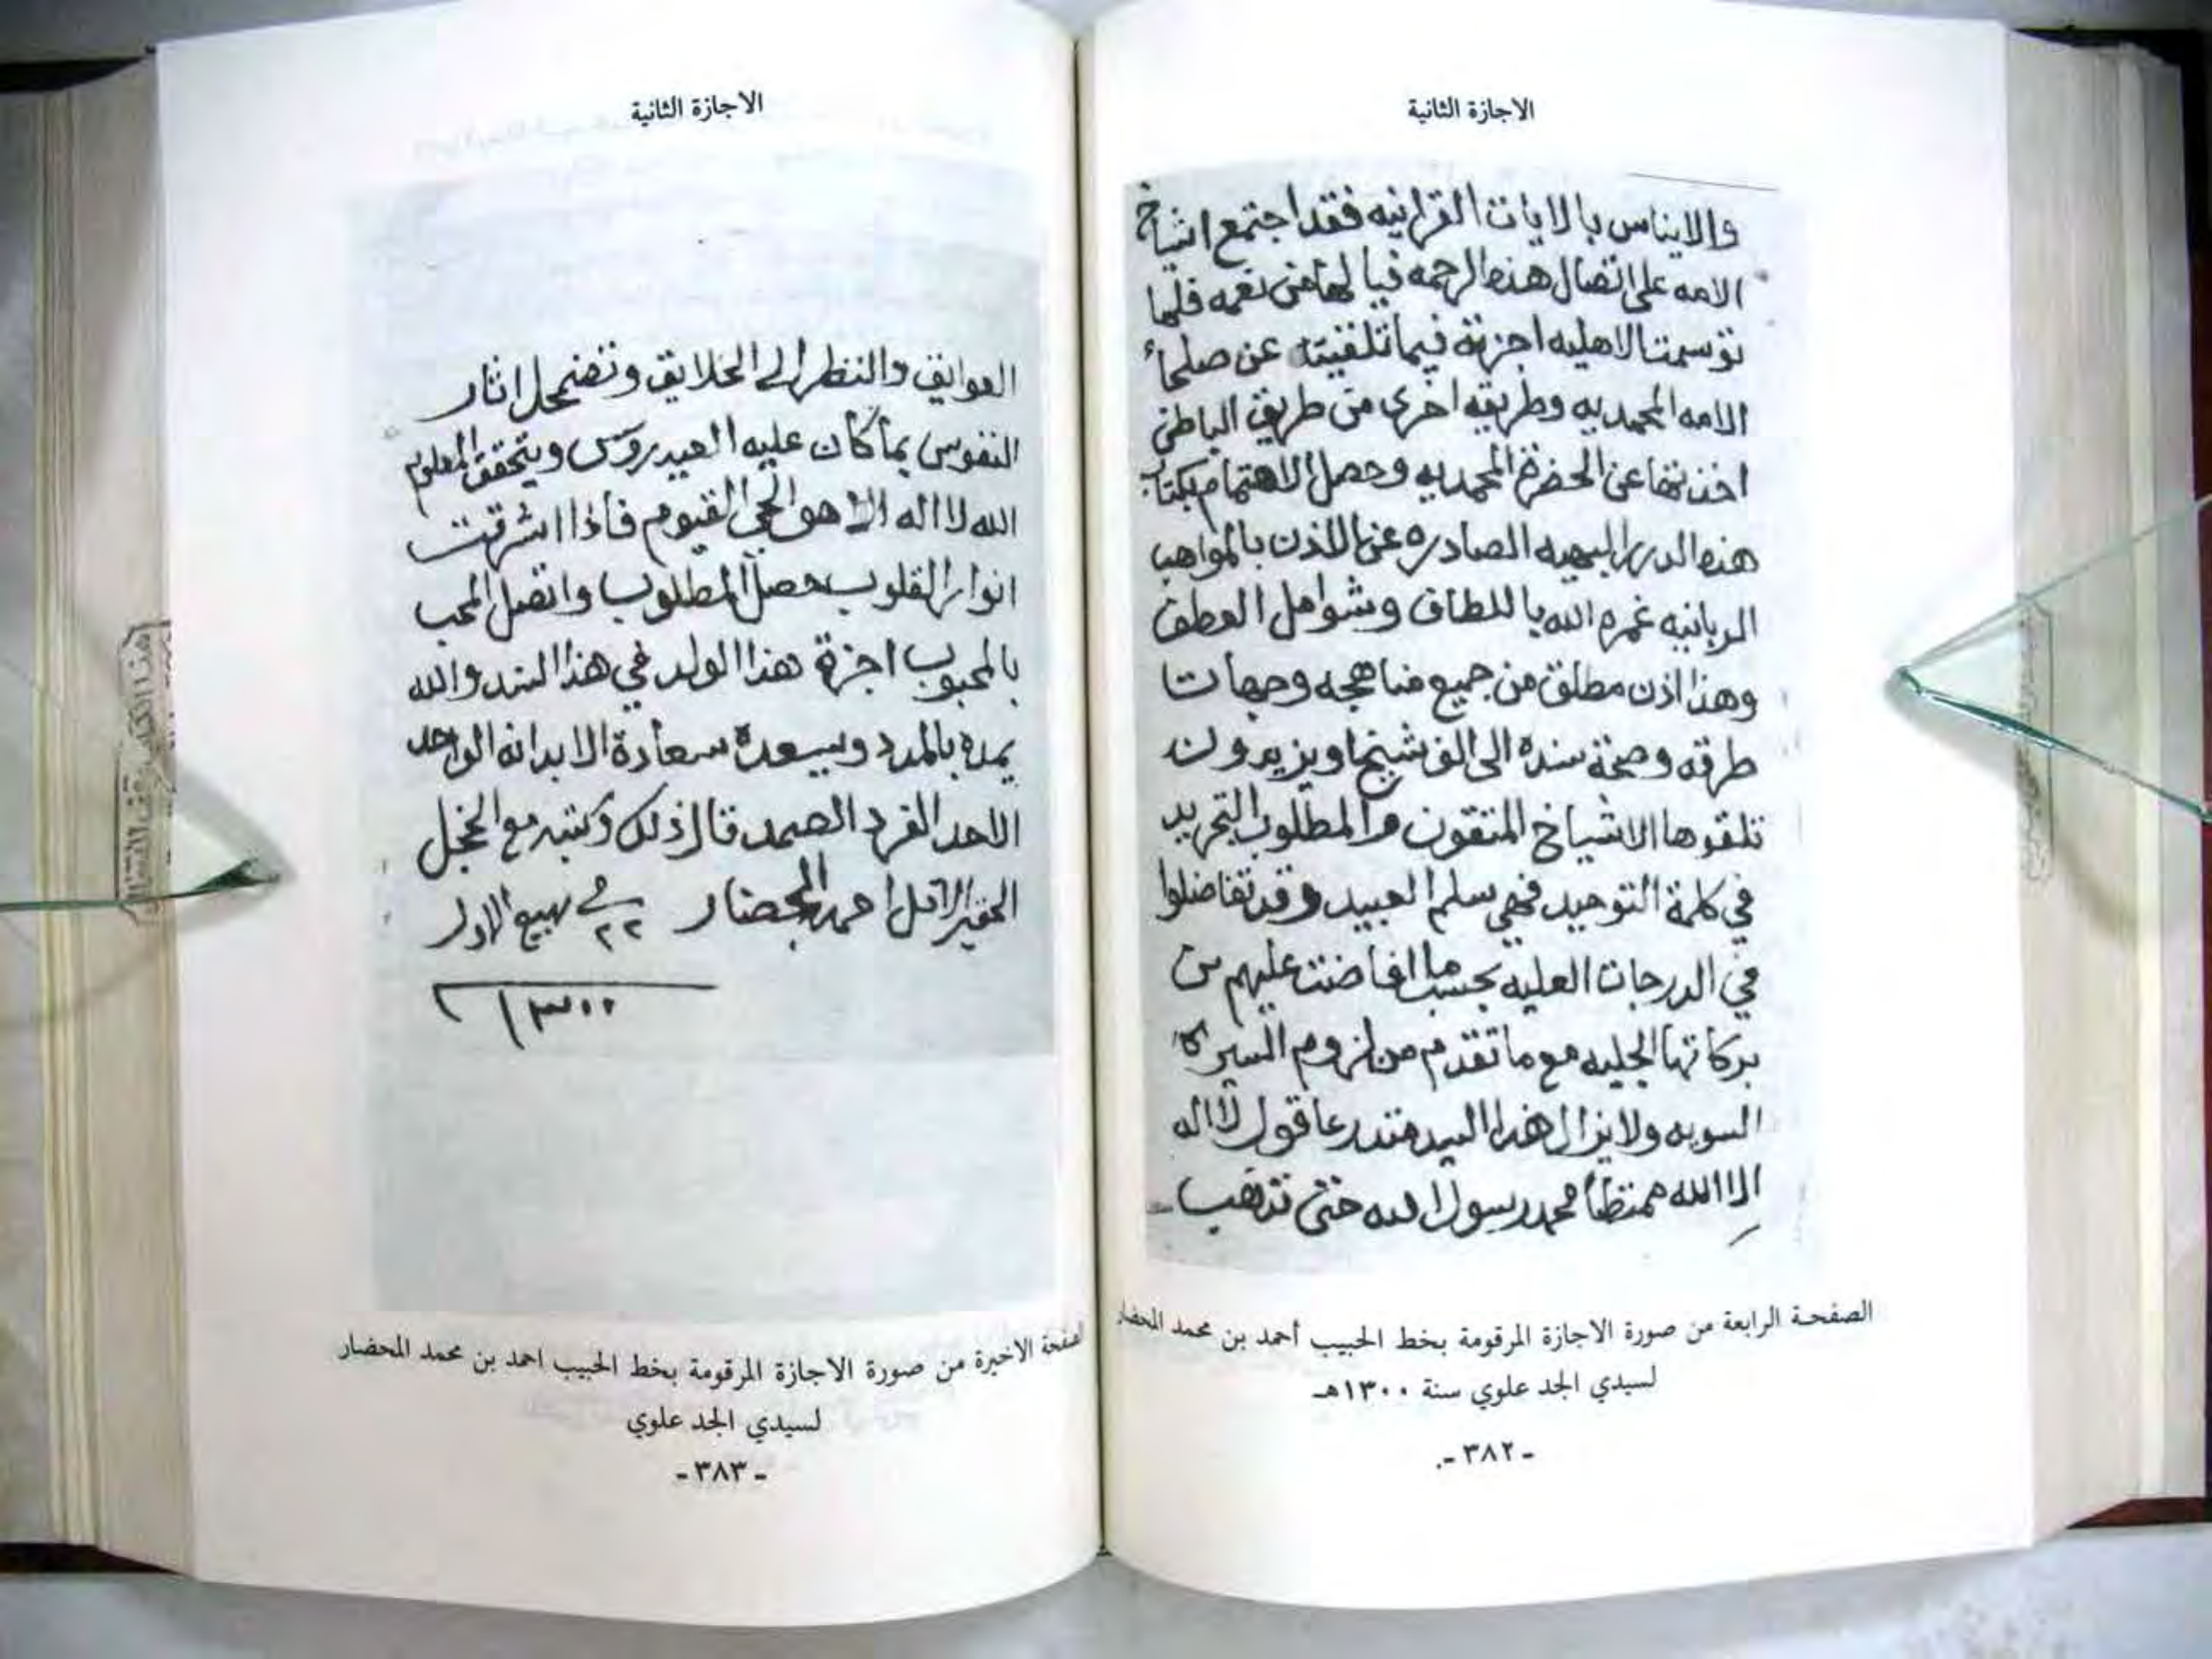 الاجازة الثانية
والايناس بالايات القرانيه فقد اجتمع اشياخ
الامه على اتصال هذه الرحمه فيا لها من نعمه فلما
توسمت الاهليه اجزته فيما تلقيته عن صلحاء
الامه المحمديه وطريقه اخرى من طريق الباطن
اخذتها عن الحضرة المحمديه وحصل الاهتمام بكتاب
هذه الدرر البهيه الصادره عن الاذن بالمواهب
الربانيه غمره الله باللطاف وشوامل العطف
وهذا اذن مطلق من جميع مناهجه وجهات
طرقه وصحة سنده الى الف شيخ او يزيدون
تلقوها الاشياخ المتقون والمطلوب التجريد
في كلمة التوحيد فهي سلم العبيد وقد تفاضلوا
في الدرجات العليه بحسب ما افاضت عليهم من
بركاتها الجليه مع ما تقدم من لزوم السيرة
السويه ولا يزال هذا السيد متدرعا قول لا اله
الا الله ممتطأ محمد رسول الله حتى تذهب
الصفحة الرابعة من صورة الاجازة المرقومة بخط الحبيب أحمد بن محمد المحضار
لسيدي الجد علوي سنة ١٣٠٠هـ
- ٣٨٢ -
الاجازة الثانية
العوايق والنظر الى الخلايق وتضمحل اثار
النفوس بما كان عليه العيدروس ويتحقق المعلوم
الله لا اله الا هو الحي القيوم فاذا اشرقت
انوار القلوب حصل المطلوب واتصل المحب
بالمحبوب اجزة هذا الولد في هذا السند والله
يمده بالمدد ويسعده سعادة الابد انه الواحد
الاحد الفرد الصمد قال ذلك وكتبه مع الخجل
الحقير الاقل احمد المحضار في ٢٢ ربيع الاول
١٣٠٠
الصفحة الاخيرة من صورة الاجازة المرقومة بخط الحبيب احمد بن محمد المحضار
لسيدي الجد علوي
- ٣٨٣ -